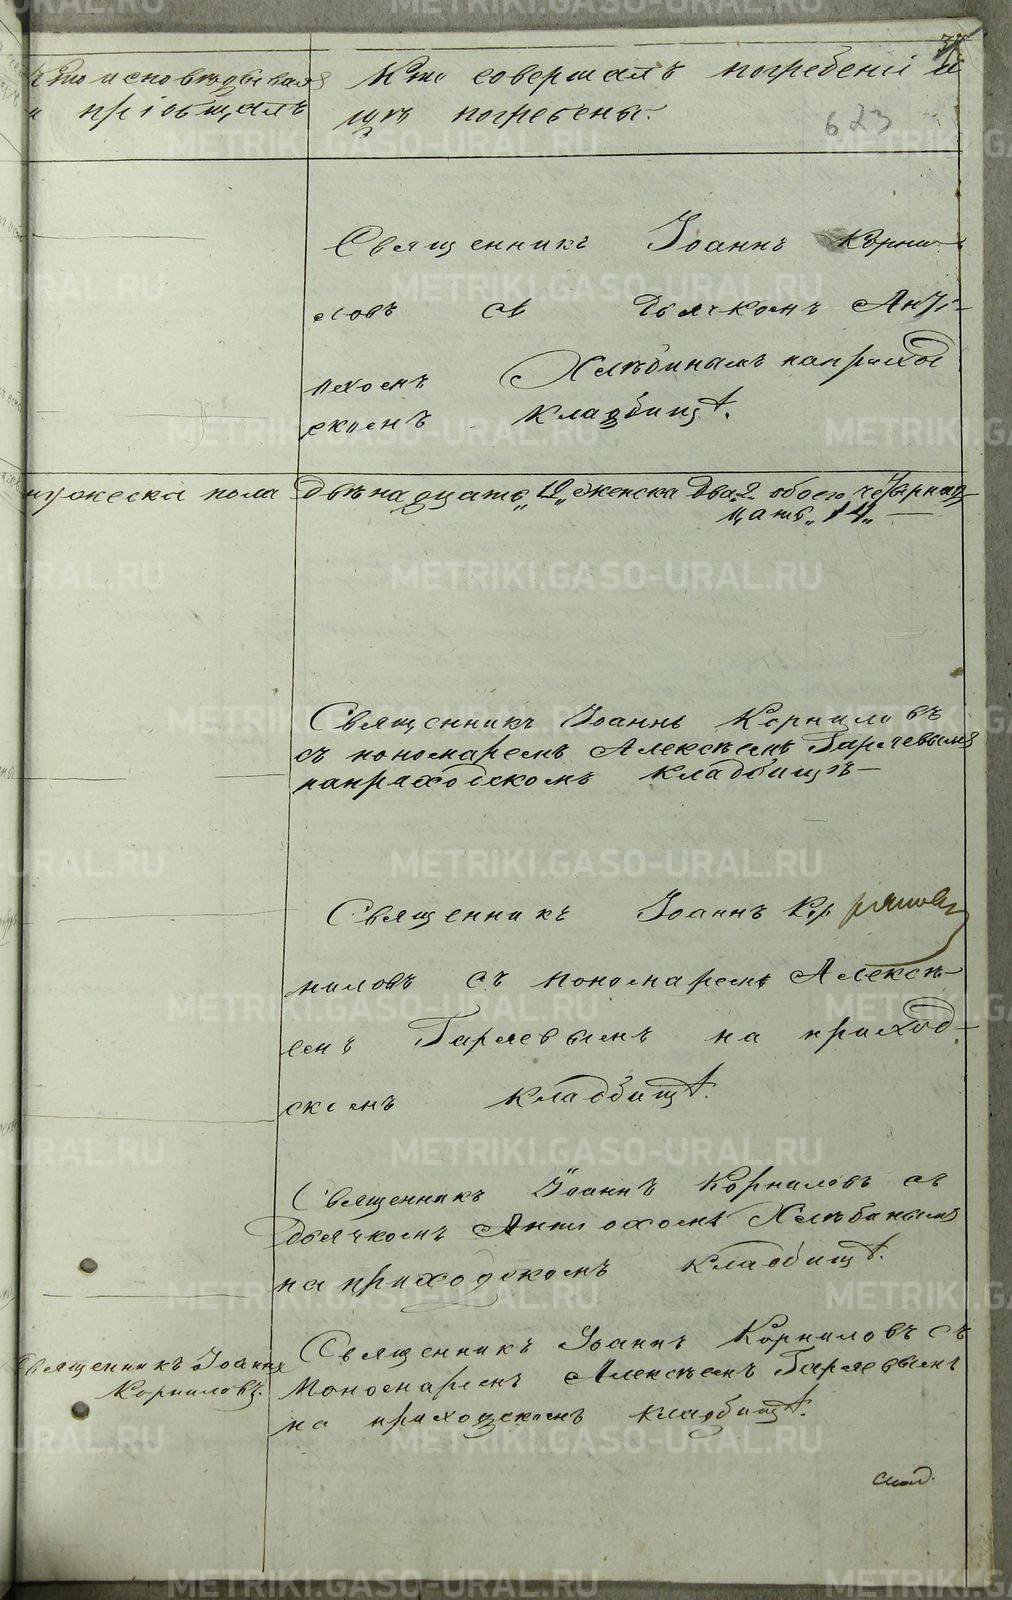 Кто исповѣдывалъ
и пріобщалъ
Кто совершалъ погребеніе и
гдѣ погребены.
623
Священникъ Іоаннъ Корни-
ловъ съ Дьячкомъ Анті-
охомъ Хлѣбинымъ на приход
скомъ кладбищѣ.
мужеска пола двѣнадцать „12„ женска два „2„ обоего четырнад-
цать „14„ —
Священникъ Іоаннъ Корниловъ
съ пономаремъ Алексѣемъ Гаряевымъ
на приходскомъ кладбищѣ —
Священникъ Іоаннъ Кор
ниловъ съ пономаремъ Алексѣ-
емъ Гаряевымъ на приход-
скомъ кладбищѣ.
Священникъ Іоаннъ Корниловъ съ
Дьячкомъ Антіохомъ Хлѣбинымъ
на приходскомъ кладбищѣ.
Священникъ Іоаннъ
Корниловъ.
Священникъ Іоаннъ Корниловъ съ
Пономаремъ Алексѣемъ Гаряевымъ
на приходскомъ кладбищѣ.
METRIKI.GASO-URAL.RU